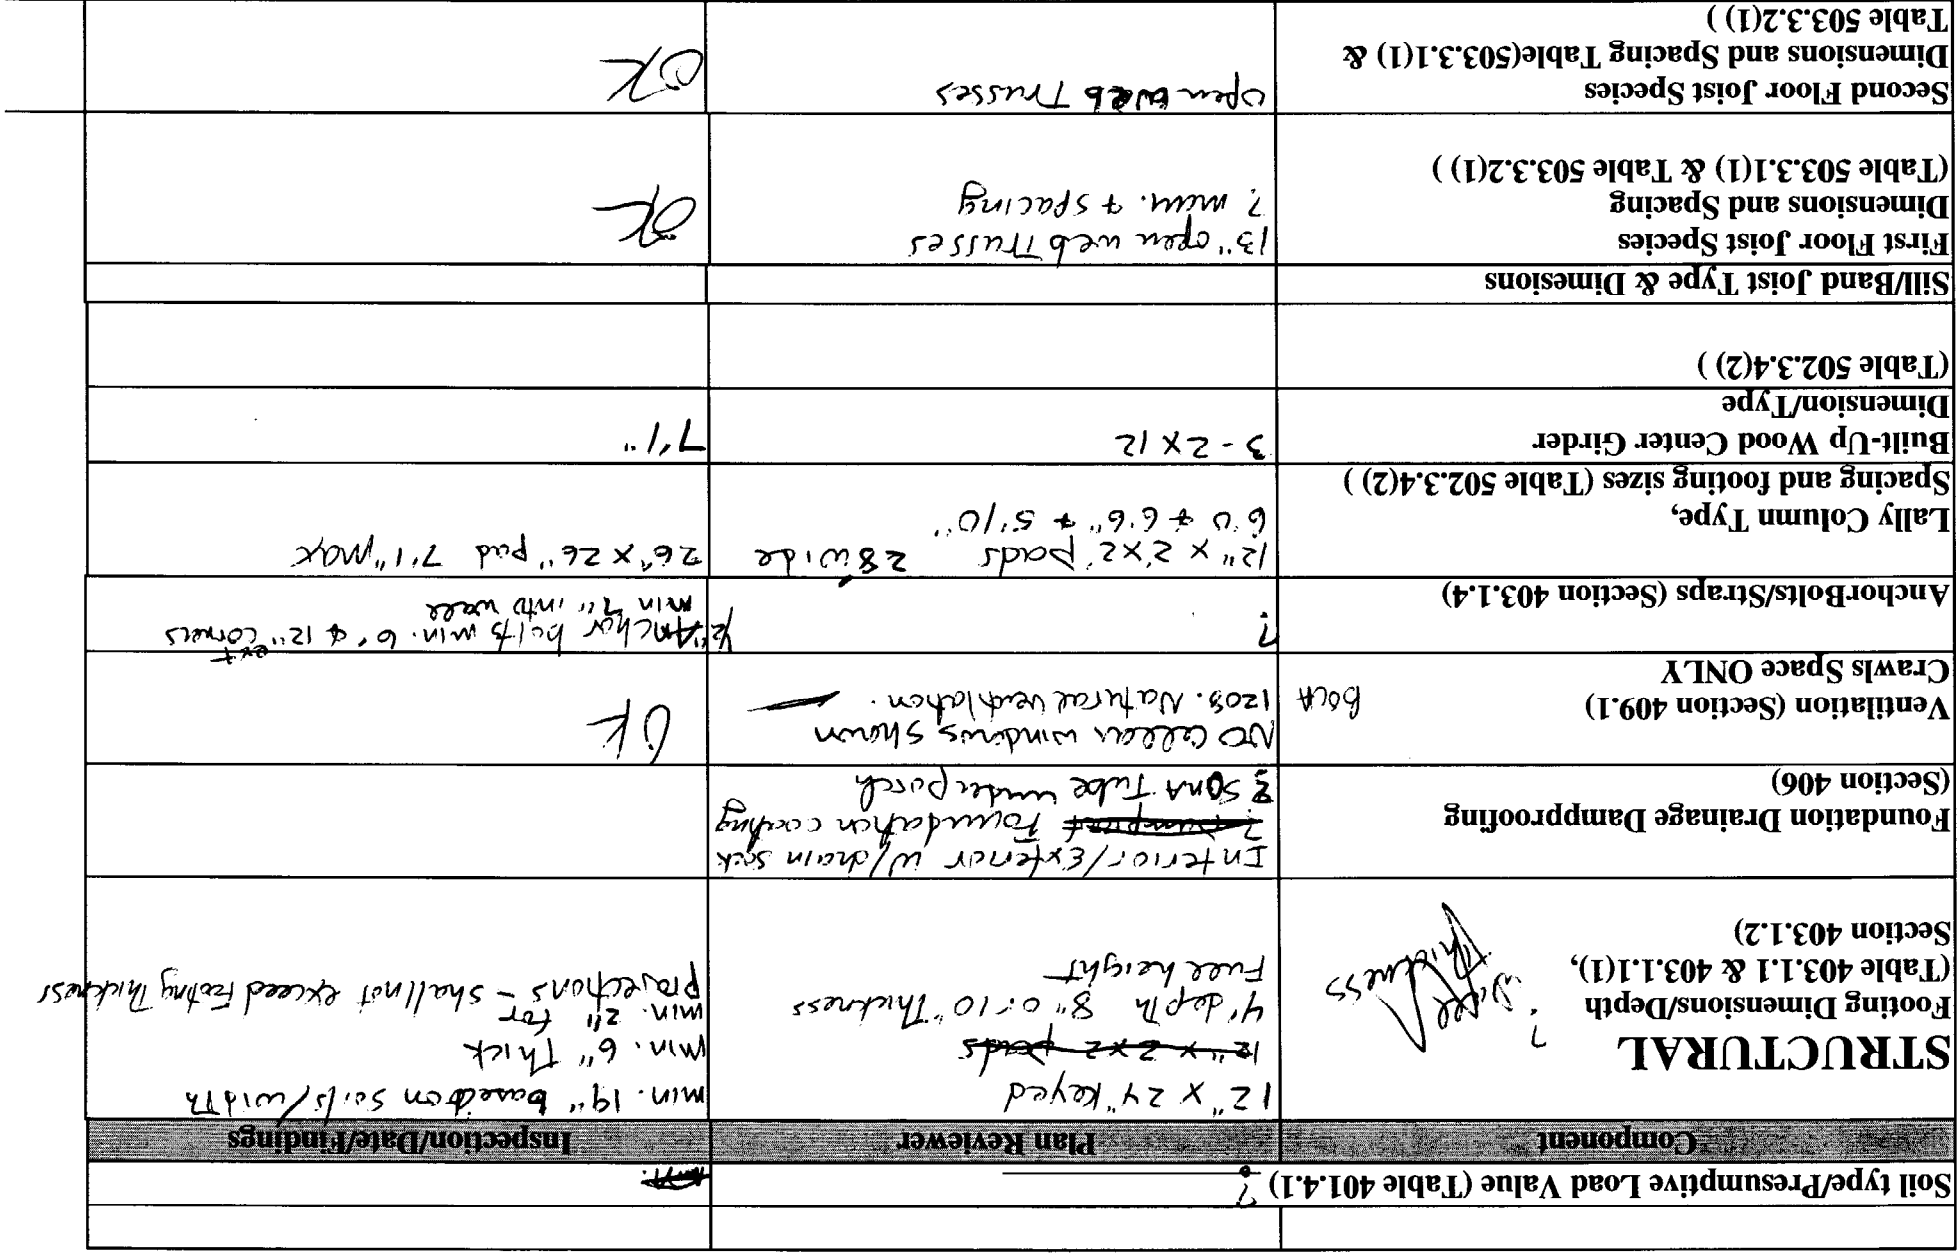 Soil type/Presumptive Load Value (Table 401.4.1) ?
Component
Plan Reviewer
Inspection/Date/Findings
STRUCTURAL
Footing Dimensions/Depth
(Table 403.1.1 & 403.1.1(1),
Section 403.1.2)
?
Wall
thickness
12" x 24" keyed
12" x 2'x2' pads
4' depth 8" or 10" Thickness
Full height
min. 19" based on soils/width
min. 6" Thick
min. 2" for
projections - shall not exceed Footing Thickness
Foundation Drainage Dampproofing
(Section 406)
Interior/Exterior w/drain sock
? Foundation coating
? Sona Tube under porch
Ventilation (Section 409.1)
Crawls Space ONLY
BOCA
NO cellar windows shown
1208. Natural ventilation.
OK
AnchorBolts/Straps (Section 403.1.4)
?
1/2" Anchor bolts min. 6' & 12" ext corners
min 7" into wall
Lally Column Type,
Spacing and footing sizes (Table 502.3.4(2) )
12" x 2'x2' pads 28' wide
6'0 + 6'6" + 5'10"
26" x 26" pad 7'1" max
Built-Up Wood Center Girder
Dimension/Type
3 - 2x12
7'1"
(Table 502.3.4(2) )
Sill/Band Joist Type & Dimesions
First Floor Joist Species
Dimensions and Spacing
(Table 503.3.1(1) & Table 503.3.2(1) )
13" open web Trusses
? mem. + spacing
OK
Second Floor Joist Species
Dimensions and Spacing Table(503.3.1(1) &
Table 503.3.2(1) )
open web Trusses
OK